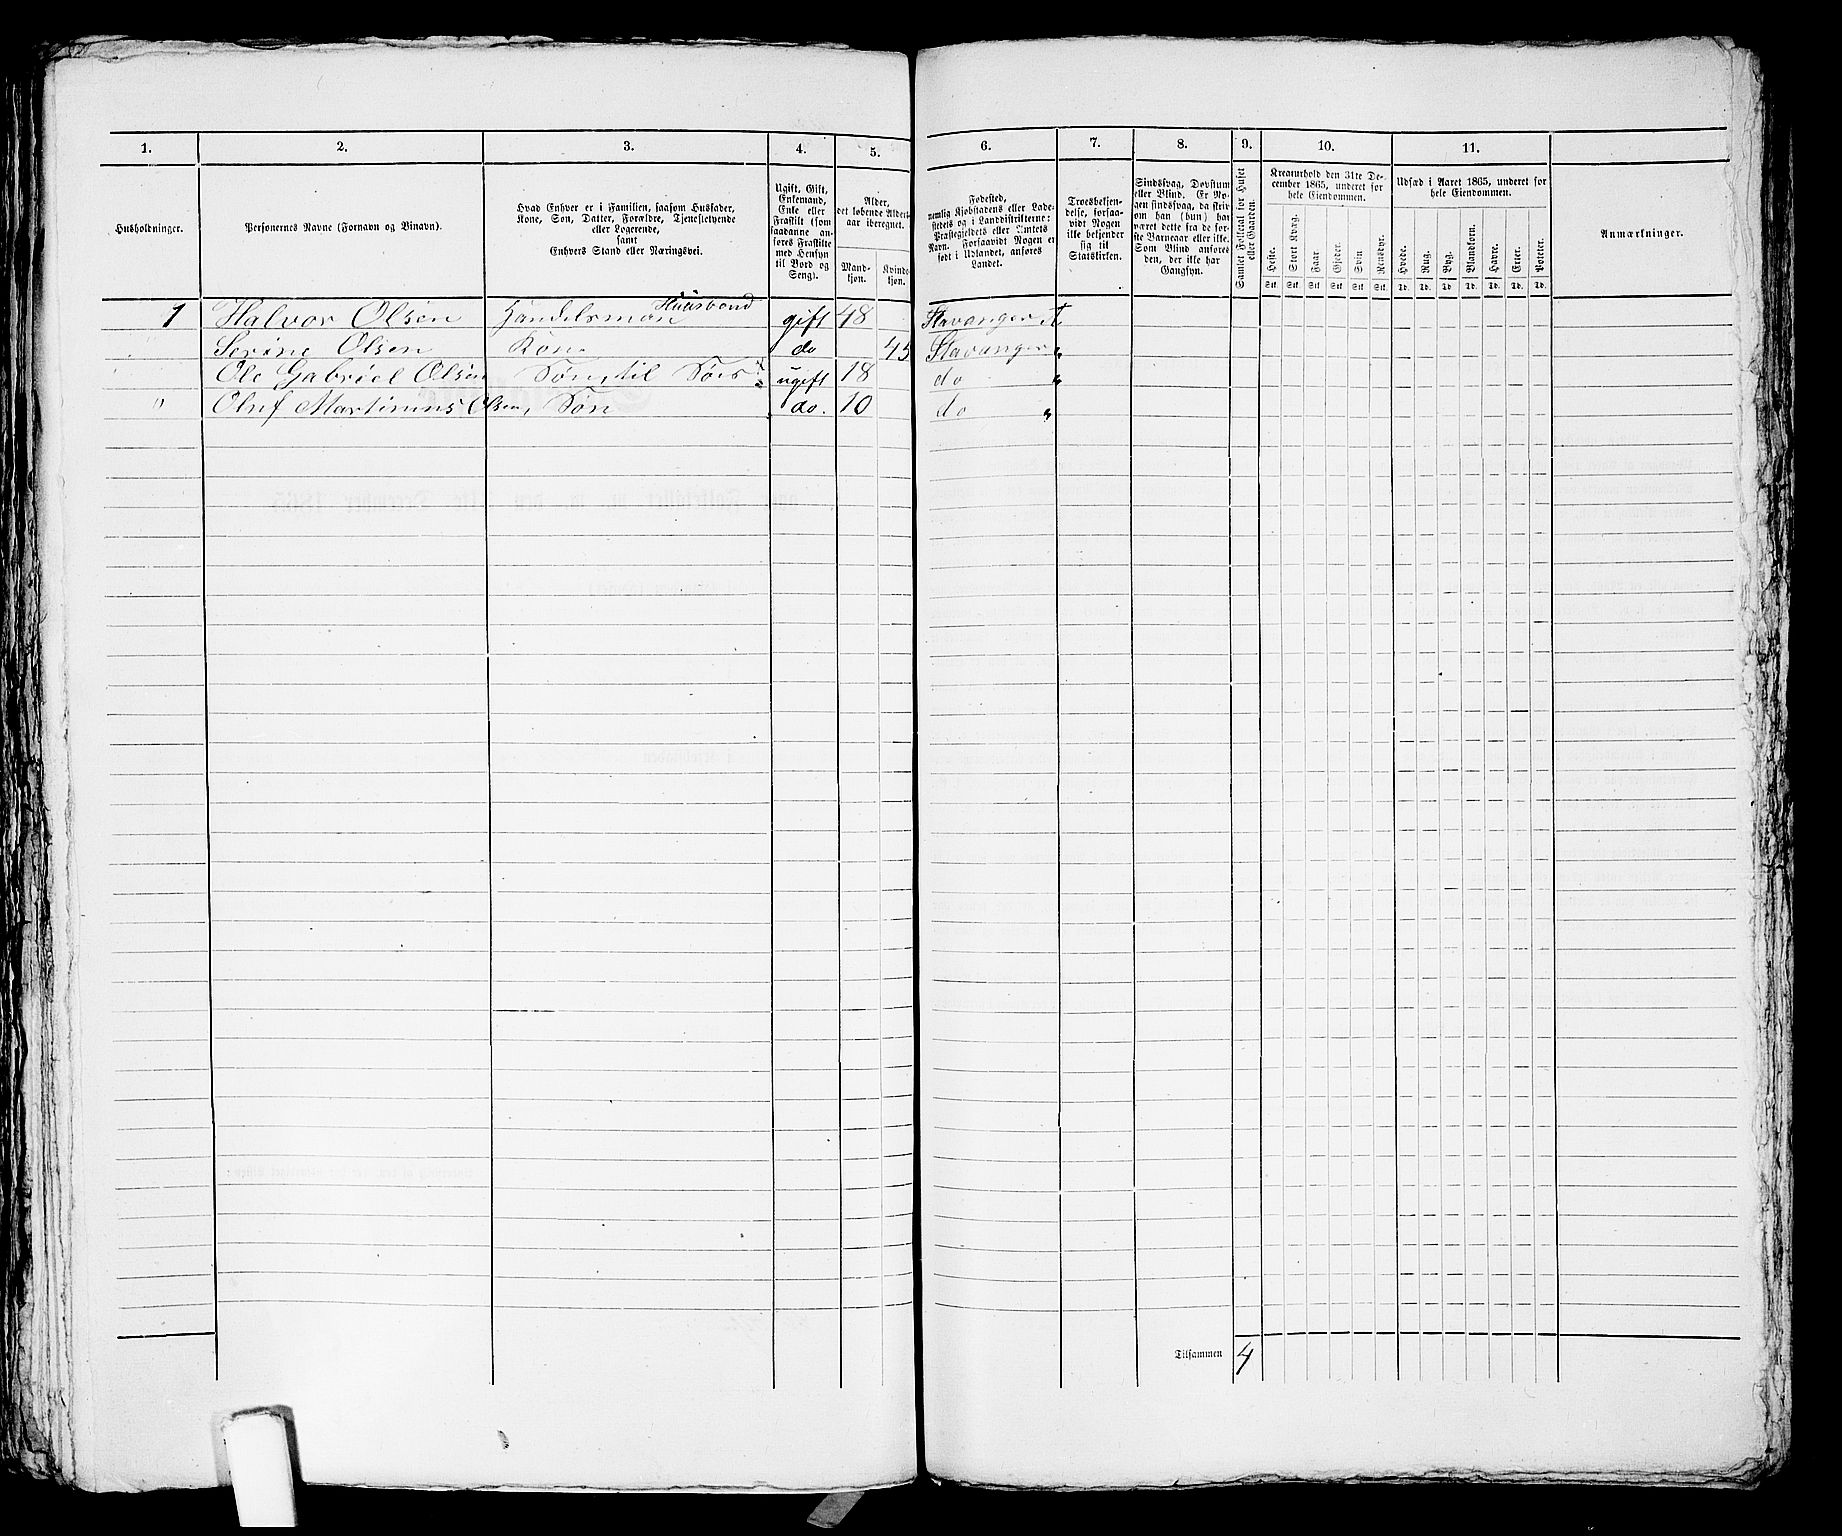 1. 2. 3. 4. 5. 6. 7. 8. 9. 10. 11.
Husholdninger.
Personernes Navne (Fornavn og Binavn).
Hvad Enhver er i Familien, saasom Husfader,
Kone, Søn, Datter, Forældre, Tjenestetyende
eller Logerende,
samt
Enhvers Stand eller Næringsvei.
Ugift, Gift,
Enkemand,
Enke eller
Fraskilt (som
saadanne an-
føres Fraskilte
med Hensyn
til Bord og
Seng).
Alder,
det løbende Alders-
aar iberegnet.
Mand-
kjøn.
Kvind-
kjøn.
Fødested,
nemlig Kjøbstadens eller Lade-
stedets og i Landdistrikterne:
Præstegjeldets eller Amtets
Navn. Forsaavidt Nogen er
født i Udlandet, anføres
Landet.
Troesbekjen-
delse, forsaa-
vidt Nogen
ikke bekjender
sig til
Statskirken.
Sindssvag, Døvstum
eller Blind. Er No-
gen sindssvag, da skriv
om han (hun) har
været dette fra de før-
ste Barneaar eller ikke.
Som Blind anføres
den, der ikke har
Gangsyn.
Samlet Folketal for Huset
eller Gaarden.
Kreaturhold den 31te De-
cember 1865, underet for
hele Eiendommen.
Heste. Stort Kvæg. Faar Gjeder. Svin Rensdyr.
Stk. Stk. Stk. Stk. Stk. Stk.
Udsæd i Aaret 1865, underet for
hele Eiendommen.
Hvede. Rug. Byg. Blandkorn. Havre. Erter. Poteter.
Td. Td. Td. Td. Td. Td. Td.
Anmærkninger.
1 Halvor Olsen Handelsman Huusbond gift 48 Stavanger
" Serine Olsen Kone do 45 Stavanger "
" Ole Gabriel Olsen Søn, til Søes ugift 18 do "
" Oluf Martinius Olsen, Søn do. 10 do "
Tilsammen 4